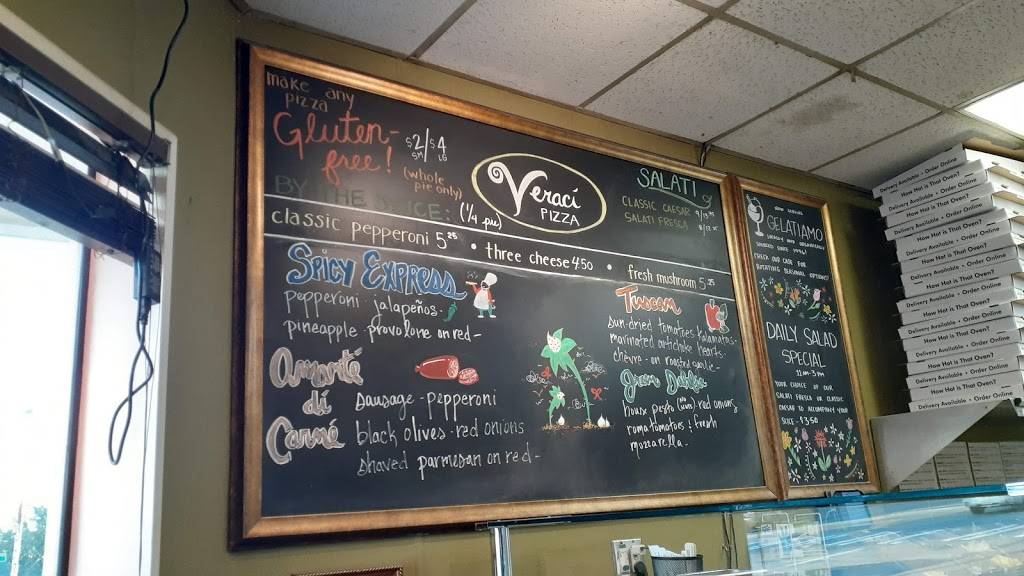 make any
pizza
Gluten-
free!
$2/$4
sm lg
(whole
pie only)
BY THE SLICE: (1/4 pie)
Veraci
PIZZA
SALATI
CLASSIC CAESAR
SALATI FRESCA
classic pepperoni 5.25 • three cheese 4.50 • fresh mushroom 5.25
SPICY EXPRESS
pepperoni - jalapeños -
pineapple - provolone on red -
Amanté
di
Carné
sausage - pepperoni
black olives - red onions
shaved parmesan on red -
Tuscan
sun-dried tomatoes - kalamatas -
marinated artichoke hearts -
chèvre - on roasted garlic -
house pesto (nuts) - red onions
roma tomatoes ; fresh
mozzarella -
GELATIAMO
CHECK OUR CASE FOR
ROTATING SEASONAL OPTIONS!
DAILY SALAD
SPECIAL
11 AM - 3 PM
YOUR CHOICE OF OUR
SALATI FRESCA OR CLASSIC
CAESAR TO ACCOMPANY YOUR
SLICE - $3.50
Delivery Available • Order Online
How Hot is That Oven?
Delivery Available • Order Online
How Hot is That Oven?
Delivery Available • Order Online
How Hot is That Oven?
Delivery Available • Order Online
How Hot is That Oven?
Delivery Available • Order Online
How Hot is That Oven?
Delivery Available • Order Online
How Hot is That Oven?
Delivery Available • Order Online
How Hot is That Oven?
Delivery Available • Order Online